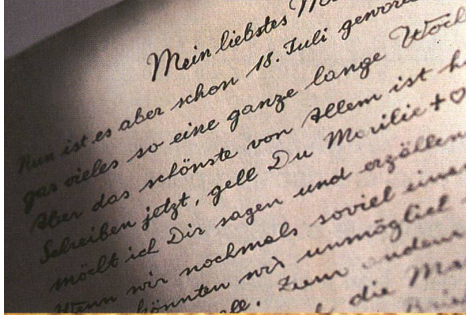 Mein liebstes
Nun ist es aber schon 18. Juli gewor
gas vieles so eine ganze lange Woch
Aber das schönste von Allem ist h
Schreiben jetzt, gell Du Marilie + ♡
möcht ich Dir sagen und erzällen
Wenn wir nochmals soviel eine
könnten wir unmöglich
ell. Zum andern
die Ma